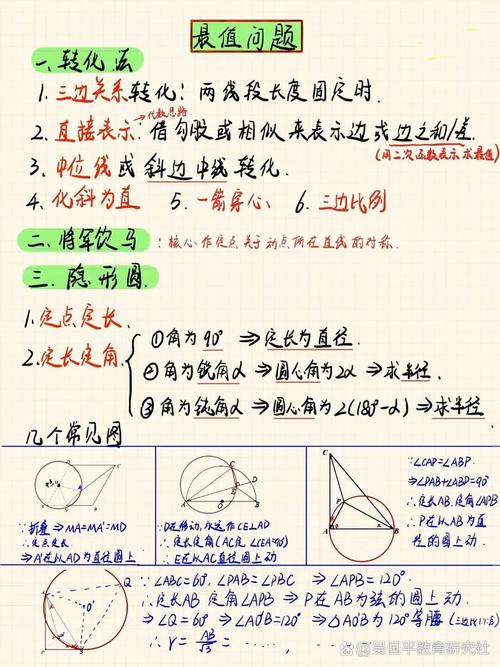 最值问题
一、转化法
1. 三边关系转化：两线段长度固定时.
2. 直接表示：借勾股或相似来表示边或边之和/差.
→代数思路
(用二次函数表示求最值)
3. 中位线或斜边中线转化.
4. 化斜为直 5. 一箭穿心 6. 三边比例
二、将军饮马：核心作定点关于动点所在直线的对称.
三、隐形圆.
1. 定点定长.
2. 定长定角.
①角为90° ⇒定长为直径.
②角为锐角α ⇒圆心角为2α ⇒求半径.
③角为钝角α ⇒圆心角为2(180°-α) ⇒求半径.
几个常见图
∵折叠 ⇒MA=MA'=MD
∴定点定长
⇒A'在以AD为直径圆上
∵D在移动,永远作CE⊥AD
∴定长定角(AC定 ∠CEA=90°)
∴E在以AC直径圆上动
∵∠CAP=∠ABP.
⇒∠PAB+∠ABP=90°
∴定长AB.定角∠APB
∴P在以AB为直
径的圆上动
∵∠ABC=60°. ∠PAB=∠PBC ⇒∠APB=120°
∴定长AB 定角∠APB ⇒P在AB为弦的圆上动.
⇒∠Q=60° ⇒∠AO'B=120° ⇒△AO'B为120°等腰(三边比1:1:√3)
∴r=AB/√3 = ……, ……
@吴国平教育研究社